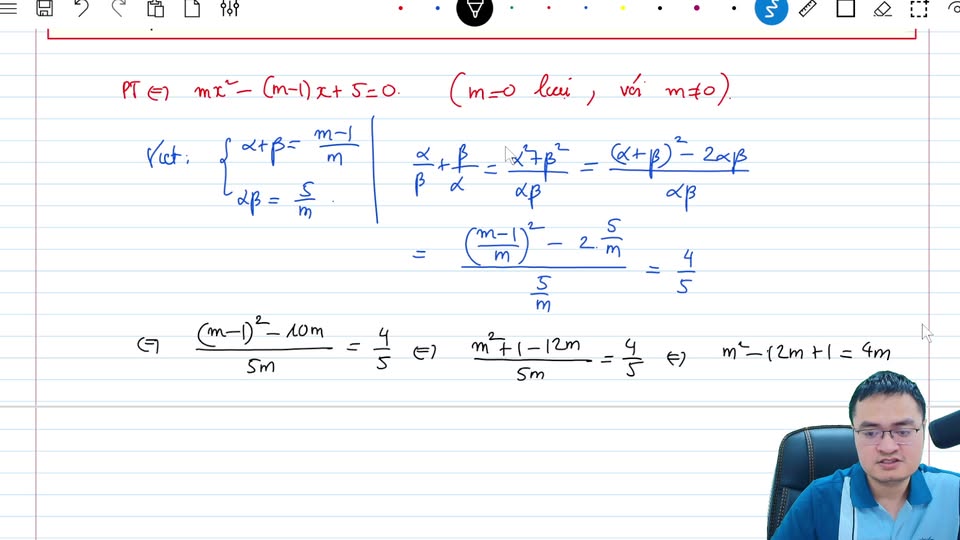 PT ⇔ mx² - (m-1)x + 5 = 0. (m=0 loại, với m≠0).
Viet: { α+β = (m-1)/m
αβ = 5/m.
α/β + β/α = (α²+β²)/(αβ) = ((α+β)² - 2αβ)/(αβ)
= (((m-1)/m)² - 2.5/m)/(5/m) = 4/5
⇔ ((m-1)² - 10m)/(5m) = 4/5 ⇔ (m²+1-12m)/(5m) = 4/5 ⇔ m²-12m+1 = 4m